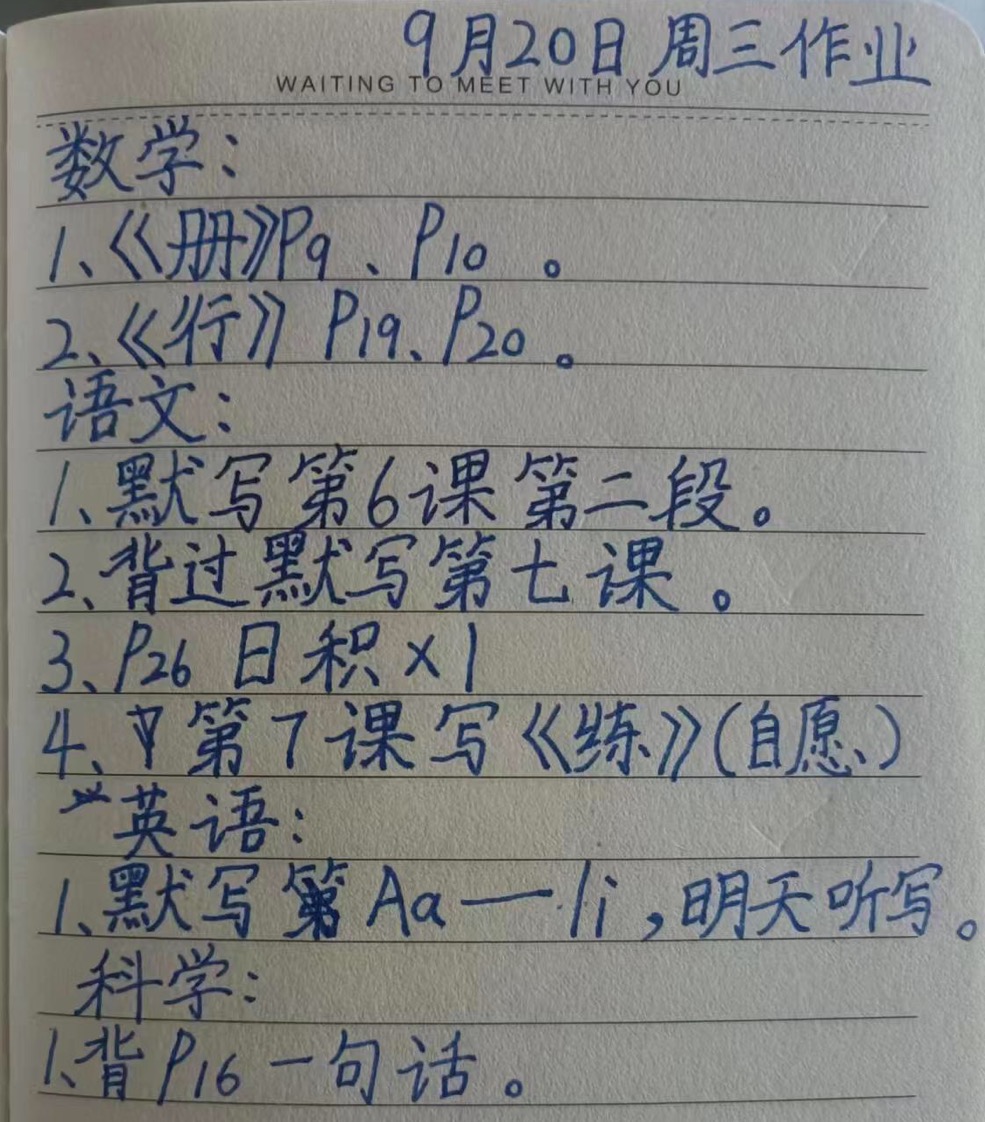 9月20日周三作业
WAITING TO MEET WITH YOU
数学：
1、《册》P9、P10。
2、《行》P19、P20。
语文：
1、默写第6课第二段。
2、背过默写第七课。
3、P26日积×1
4、第7课写《练》(自愿、)
英语：
1、默写第Aa—Ii，明天听写。
科学：
1、背P16一句话。